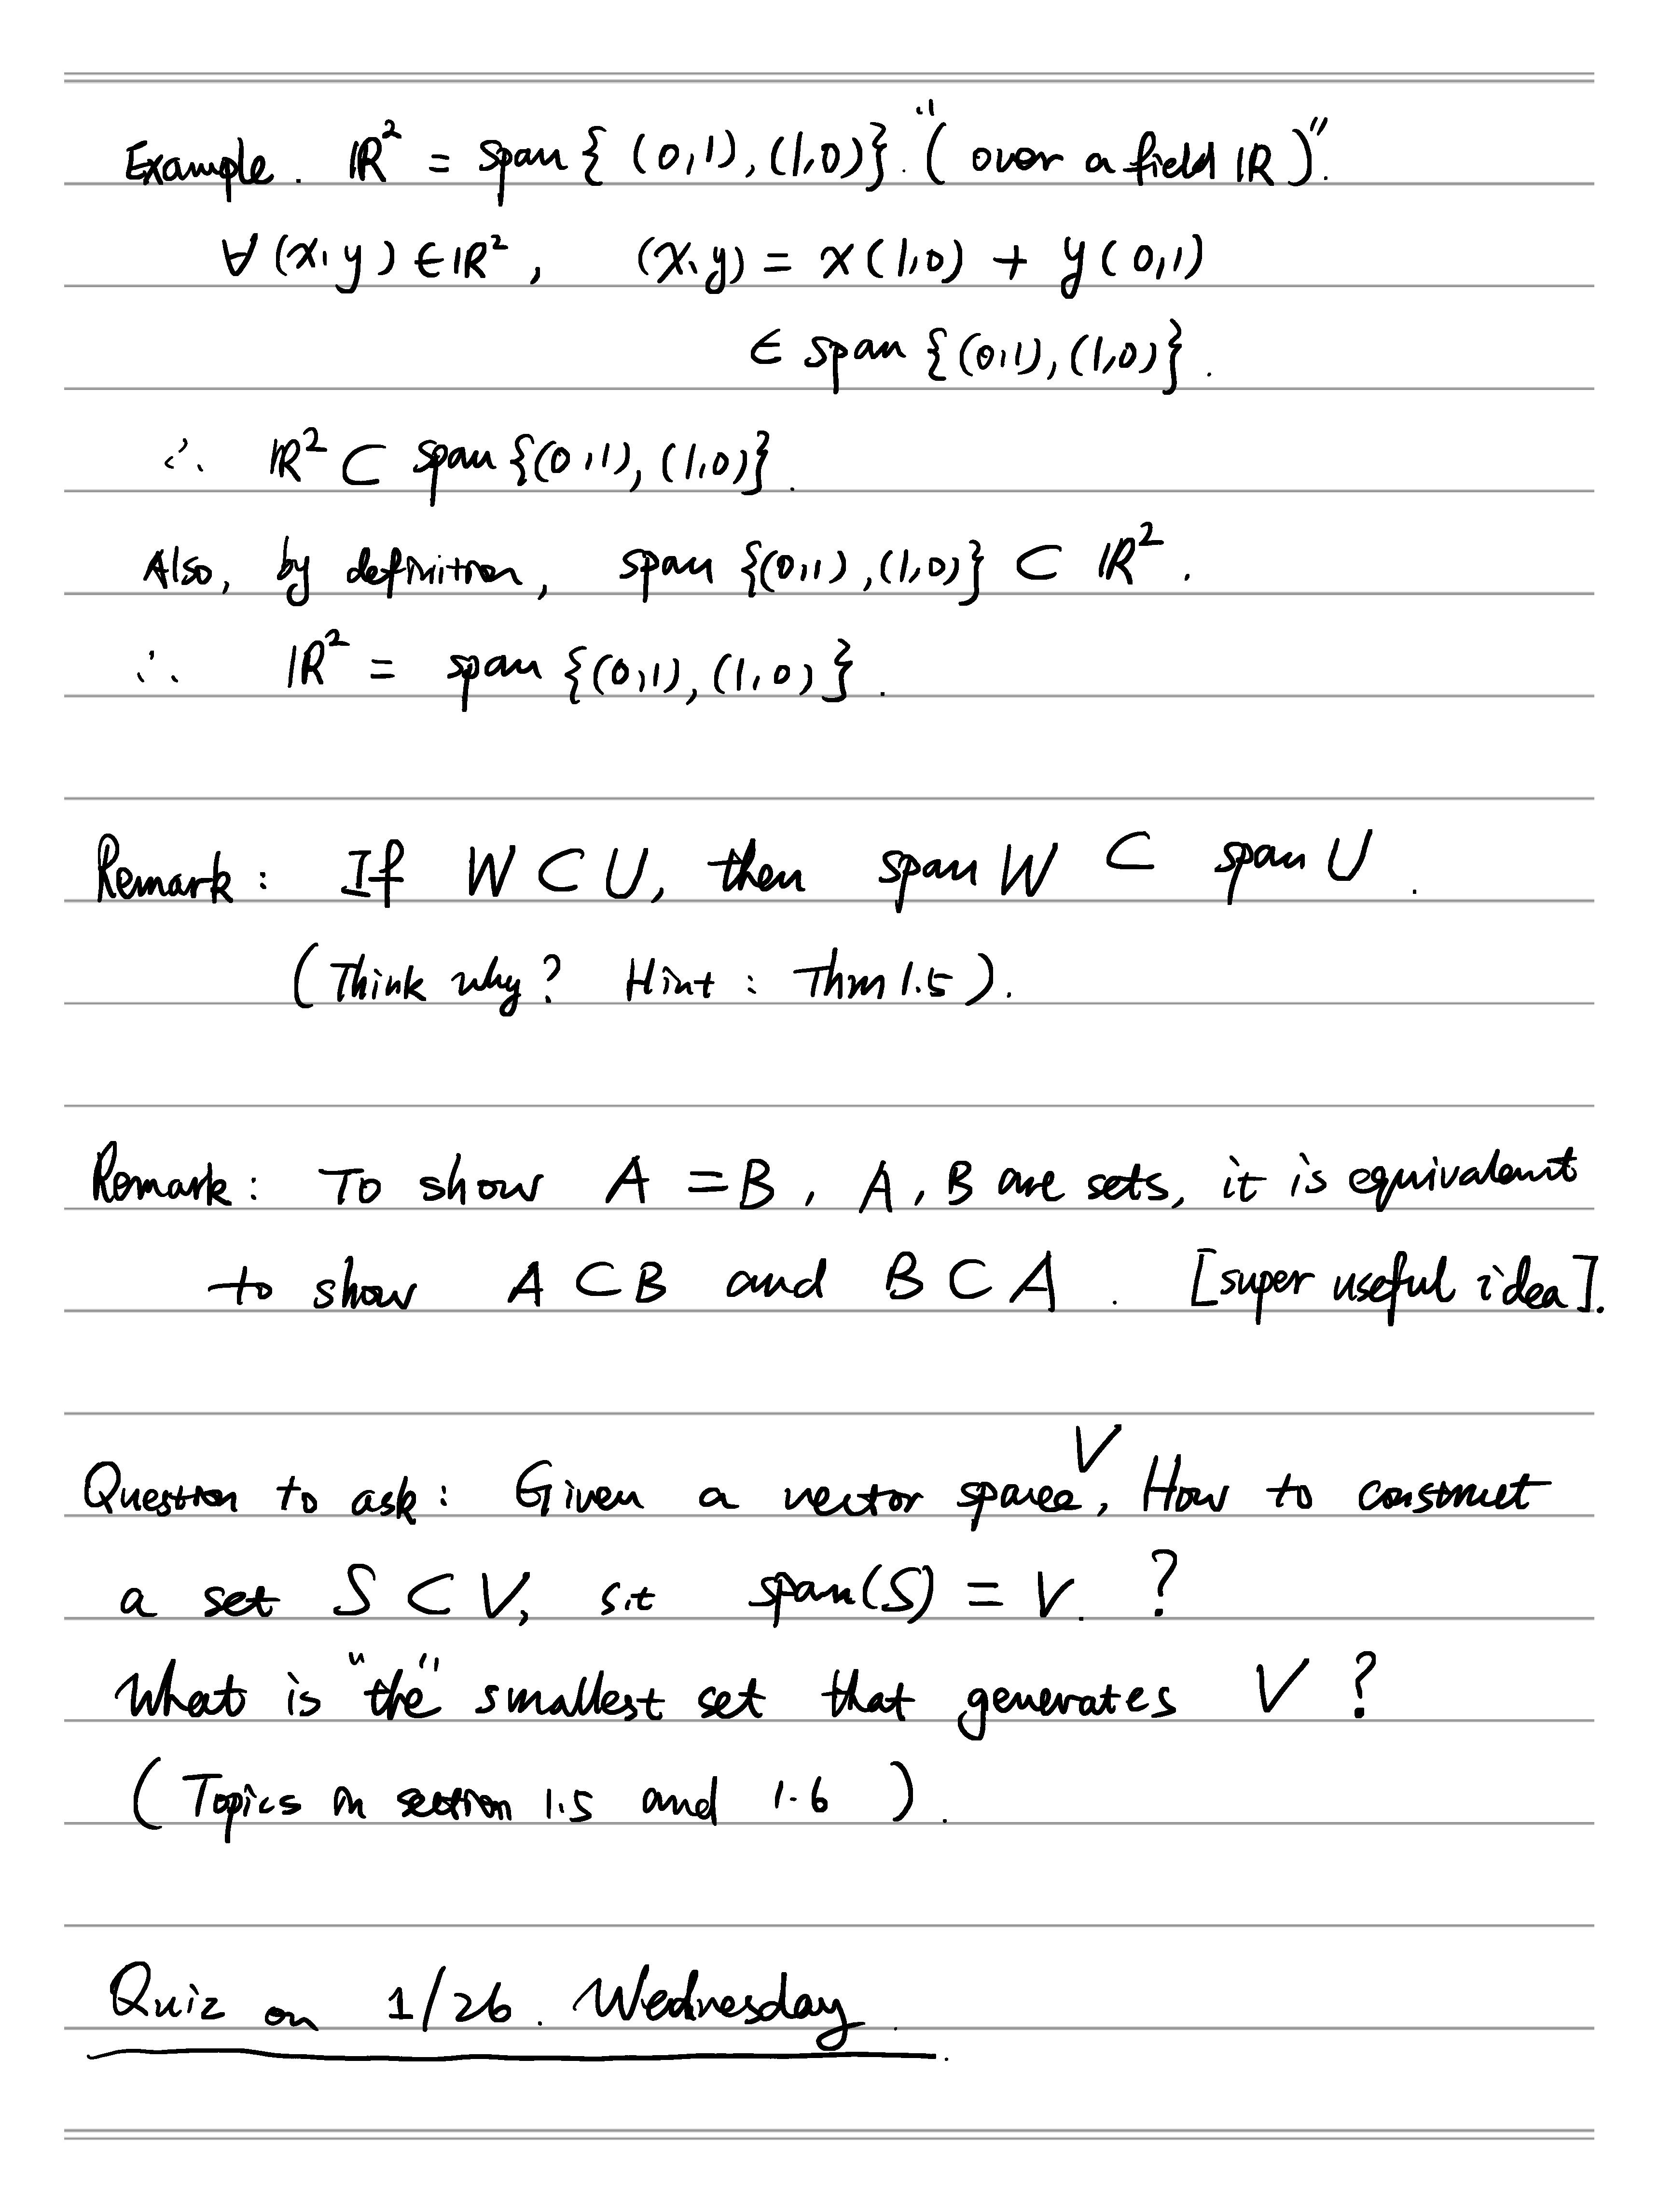 Example. ℝ² = span{(0,1),(1,0)}. "(over a field ℝ)".
∀(x,y)∈ℝ², (x,y) = x(1,0) + y(0,1)
∈ span{(0,1),(1,0)}.
∴ ℝ² ⊂ span{(0,1),(1,0)}.
Also, by definition, span{(0,1),(1,0)} ⊂ ℝ².
∴ ℝ² = span{(0,1),(1,0)}.
Remark: If W ⊂ U, then span W ⊂ span U.
(Think why? Hint: Thm 1.5).
Remark: To show A = B, A, B are sets, it is equivalent
to show A ⊂ B and B ⊂ A. [super useful idea].
Question to ask: Given a vector space V, How to construct
a set S ⊂ V, s.t span(S) = V. ?
What is "the" smallest set that generates V ?
(Topics in section 1.5 and 1.6).
Quiz on 1/26. Wednesday.